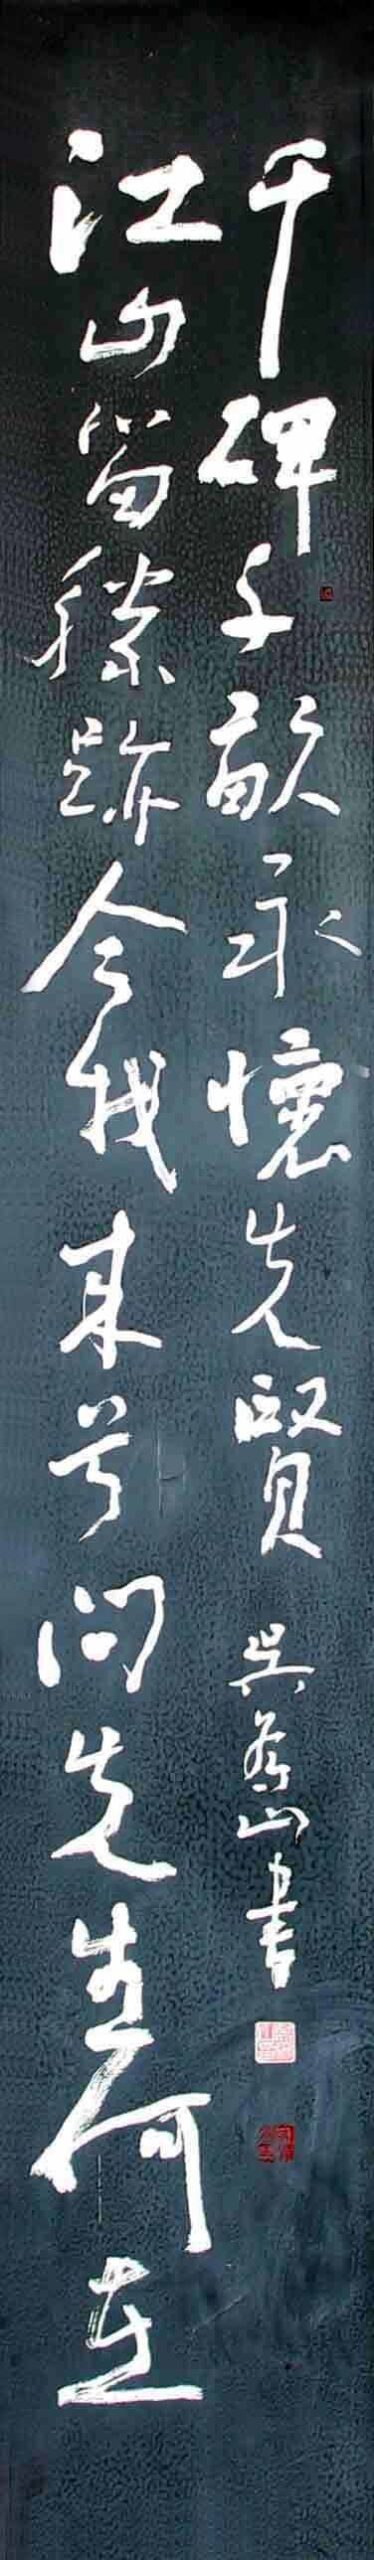 千碑千畝永懷先賢 吳茀山書
江山留勝跡今我來兮問先生何在